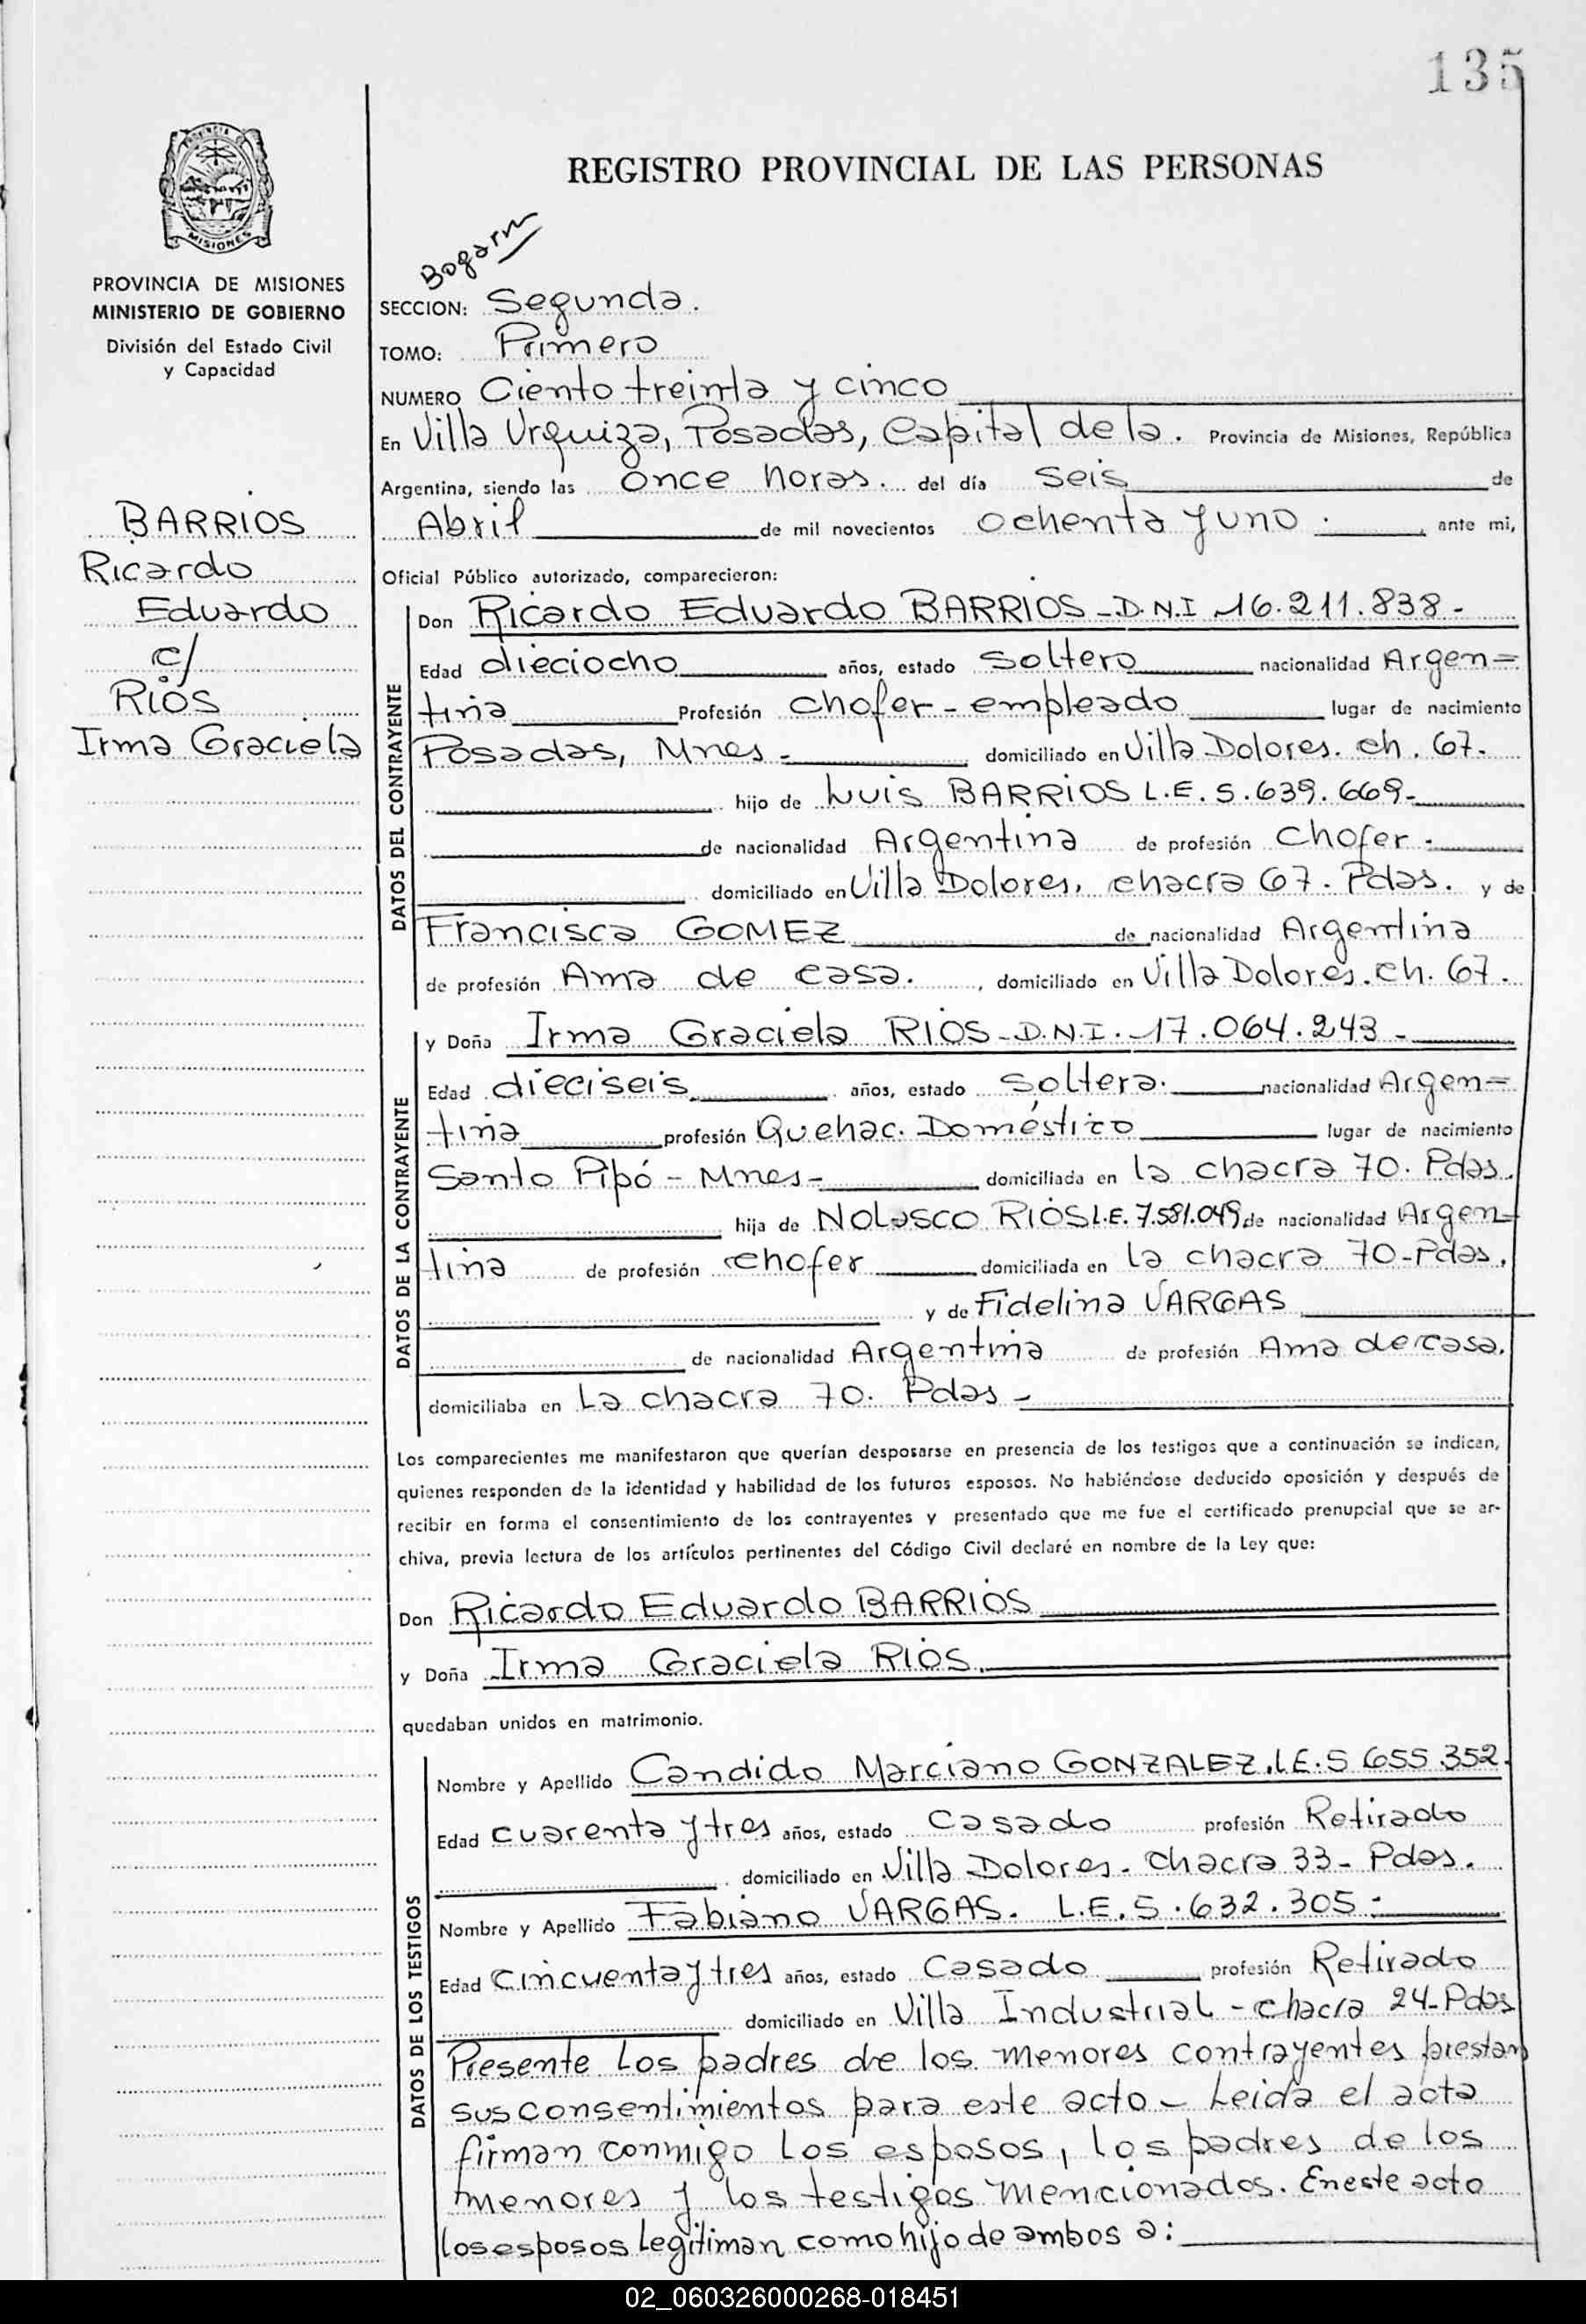 135
PROVINCIA DE
MISIONES
REGISTRO PROVINCIAL DE LAS PERSONAS
PROVINCIA DE MISIONES
MINISTERIO DE GOBIERNO
División del Estado Civil
y Capacidad
BARRIOS
Ricardo
Eduardo
c/
RIOS
Irma Graciela
SECCION: Segunda.
TOMO: Primero
NUMERO Ciento treinta y cinco
En Villa Urquiza, Posadas, Capital de la. Provincia de Misiones, República
Argentina, siendo las once horas. del día seis de
Abril de mil novecientos ochenta y uno. , ante mi,
Oficial Público autorizado, comparecieron:
DATOS DEL CONTRAYENTE
Don Ricardo Eduardo BARRIOS - D.N.I 16.211.838.-
Edad dieciocho años, estado soltero nacionalidad Argen=
tina Profesión chofer - empleado lugar de nacimiento
Posadas, Mnes - domiciliado en Villa Dolores. ch. 67.
hijo de Luis BARRIOS L.E. 5.639.669.-
de nacionalidad Argentina de profesión Chofer.-
domiciliado en Villa Dolores, chacra 67. Pdas. y de
Francisca GOMEZ de nacionalidad Argentina
de profesión Ama de casa. , domiciliado en Villa Dolores. ch. 67.
DATOS DE LA CONTRAYENTE
y Doña Irma Graciela RIOS - D.N.I. 17.064.243 -
Edad dieciseis años, estado soltera. nacionalidad Argen=
tina profesión Quehac. Doméstico lugar de nacimiento
Santo Pipó - Mnes - domiciliada en la chacra 70. Pdas.
hija de NOLASCO RIOS L.E. 7.581.049 de nacionalidad Argen-
tina de profesión chofer domiciliada en la chacra 70-Pdas.
y de Fidelina VARGAS
de nacionalidad Argentina de profesión Ama de casa.
domiciliaba en La chacra 70. Pdas -
Los comparecientes me manifestaron que querían desposarse en presencia de los testigos que a continuación se indican,
quienes responden de la identidad y habilidad de los futuros esposos. No habiéndose deducido oposición y después de
recibir en forma el consentimiento de los contrayentes y presentado que me fue el certificado prenupcial que se ar-
chiva, previa lectura de los artículos pertinentes del Código Civil declaré en nombre de la Ley que:
Don Ricardo Eduardo BARRIOS
y Doña Irma Graciela RIOS.
quedaban unidos en matrimonio.
DATOS DE LOS TESTIGOS
Nombre y Apellido Candido Marciano GONZALEZ. L.E. 5 655.352.
Edad cuarenta y tres años, estado Casado profesión Retirado
domiciliado en Villa Dolores - chacra 33 - Pdas.
Nombre y Apellido Fabiano VARGAS. L.E. 5.632.305.-
Edad cincuenta y tres años, estado Casado profesión Retirado
domiciliado en Villa Industrial - chacra 24-Pdas
Presente los padres de los menores contrayentes prestan
sus consentimientos para este acto - Leida el acta
firman conmigo los esposos, los padres de los
menores y los testigos mencionados. En este acto
los esposos legitiman como hijo de ambos a:
02_060326000268-018451